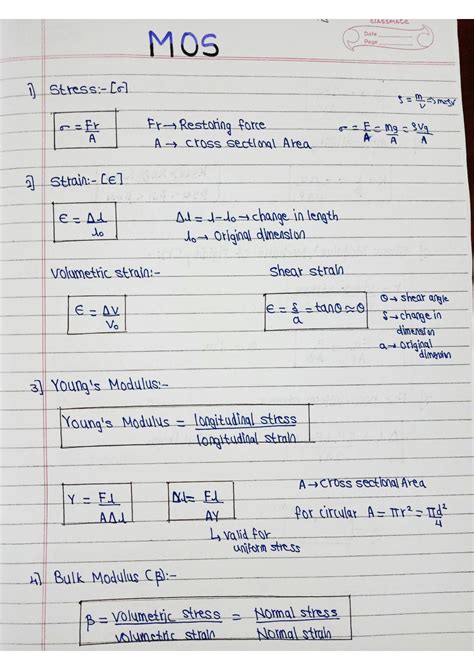 classmate
Date
Page
MOS
1] Stress:- [σ]
σ = Fr/A
Fr → Restoring force
A → cross sectional Area
ρ = m/v ⇒ m=ρv
σ = F/A = mg/A = ρVg/A
2] Strain:- [ϵ]
ϵ = Δl/l₀
Δl = l-l₀ → change in length
l₀ → Original dimension
Volumetric strain:-
Shear strain
ϵ = ΔV/V₀
ϵ = δ/a = tanθ ≃ θ
θ → shear angle
δ → change in
dimension
a → original
dimension
3] Young's Modulus:-
Young's Modulus = longitudinal stress/longitudinal strain
Y = Fl/AΔl
Δl = Fl/AY
↳ valid for
uniform stress
A → Cross sectional Area
for circular A = πr² = πd²/4
4] Bulk Modulus (β):-
β = volumetric stress/volumetric strain = Normal stress/Normal strain